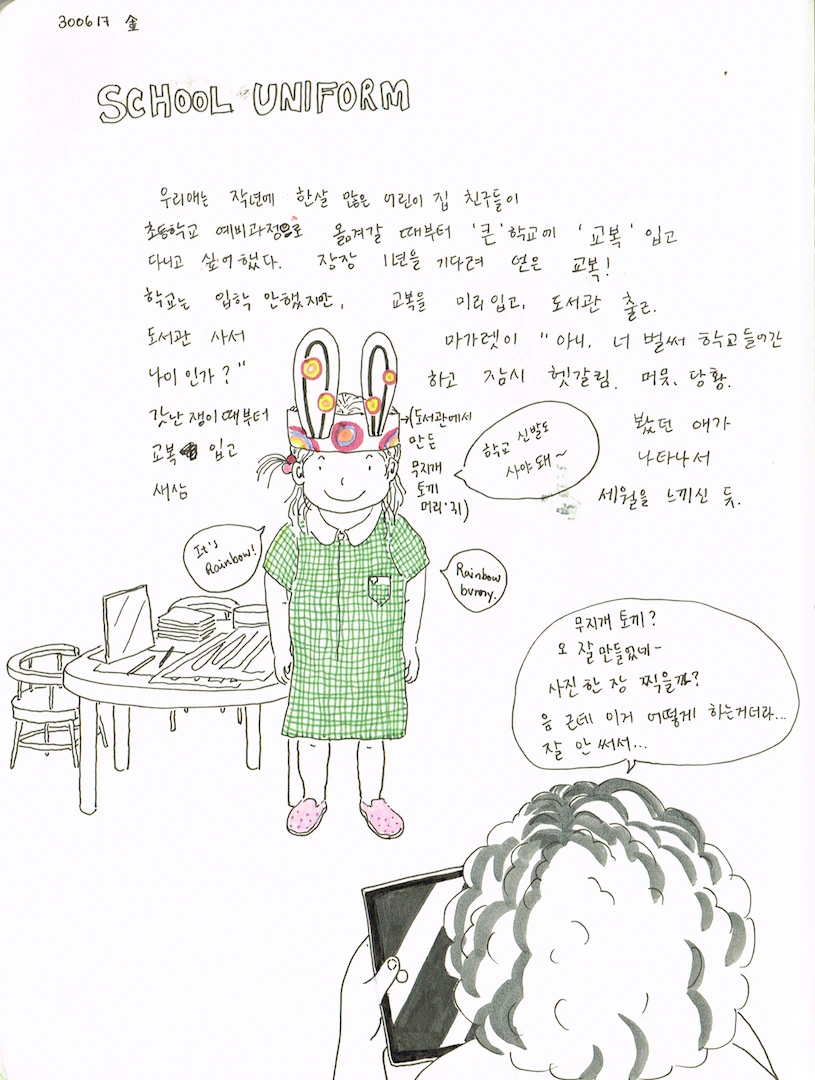 300617 金
SCHOOL UNIFORM
우리애는 작년에 한살 많은 어린이 집 친구들이
초등학교 예비과정으로 옮겨갈 때부터 '큰'학교에 '교복' 입고
다니고 싶어했다. 장장 1년을 기다려 얻은 교복!
학교는 입학 안했지만, 교복을 미리 입고, 도서관 출근.
도서관 사서 마가렛이 "아니, 너 벌써 학교 들어간
나이 인가?" 하고 잠시 헷갈림. 머뭇, 당황.
갓난 쟁이 때부터 봤던 애가
교복 입고 나타나서
새삼 세월을 느끼신 듯.
→(도서관에서
만든
무지개
토끼
머리띠)
학교 신발도
사야 돼~
It's
Rainbow!
Rainbow
bunny.
무지개 토끼?
오 잘 만들었네~
사진 한 장 찍을까?
음 근데 이거 어떻게 하는거더라...
잘 안 써서...